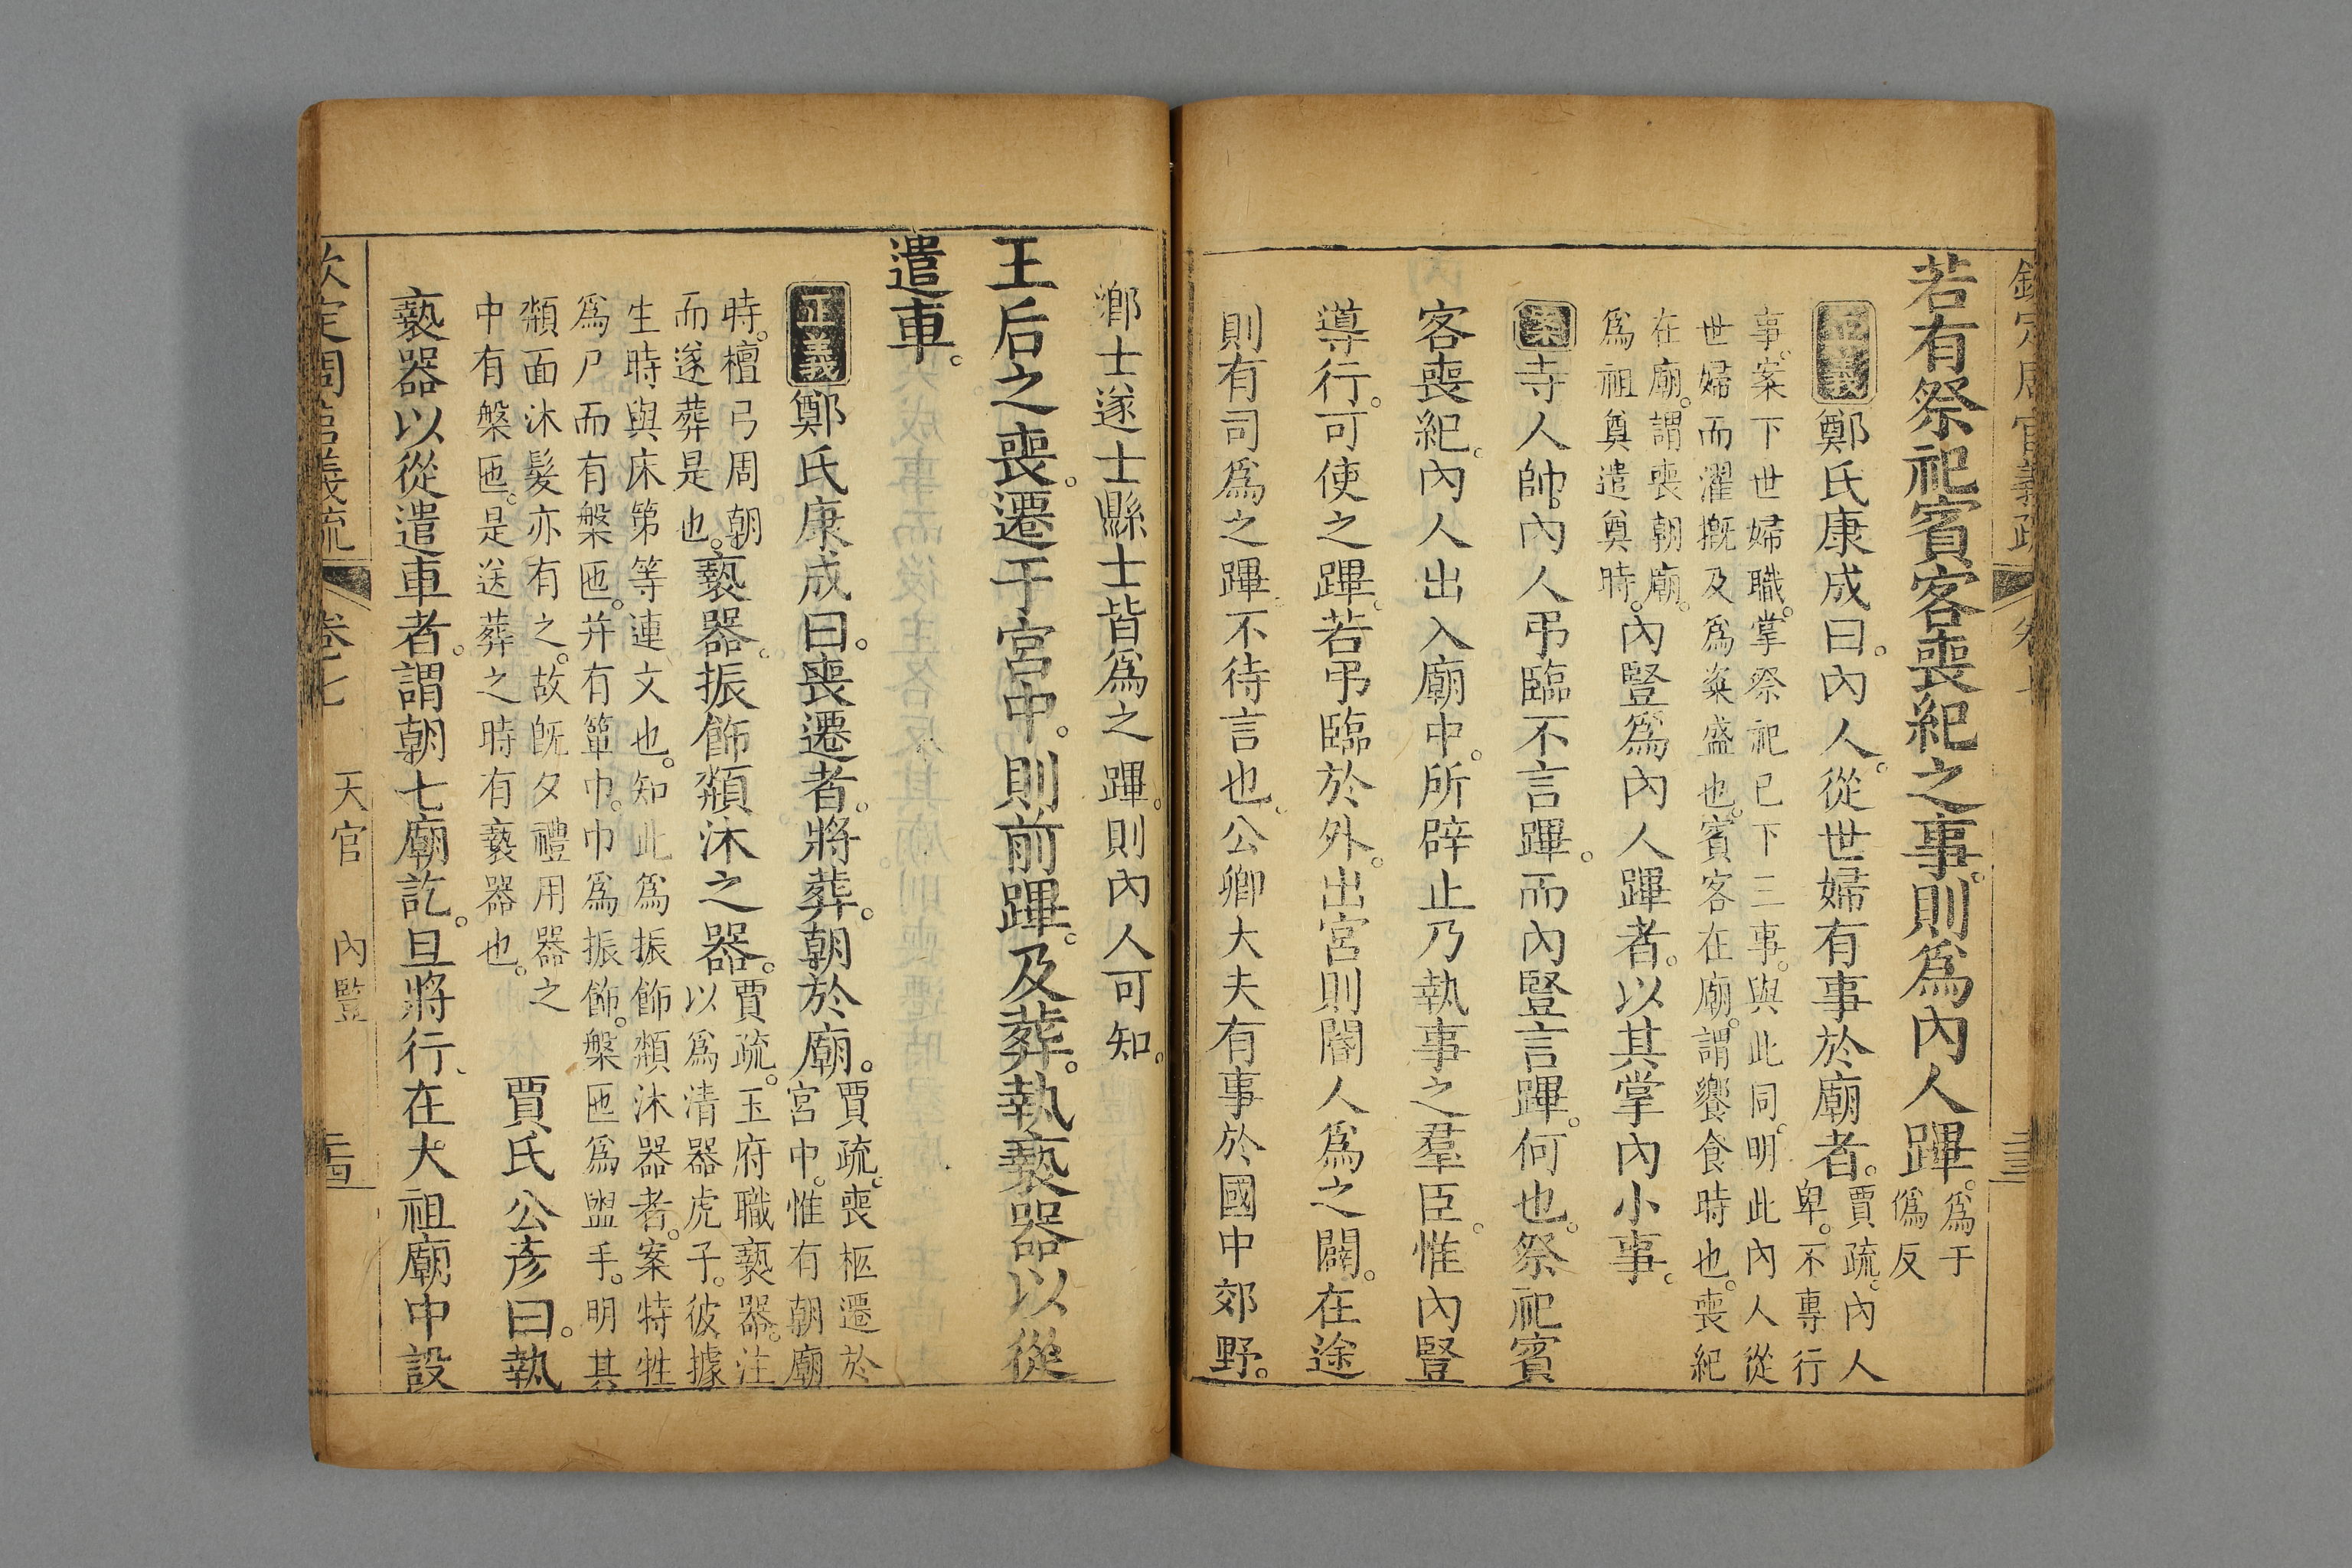 欽定周官義疏 卷七
若有祭祀賓客喪紀之事。則爲內人蹕。爲于
僞反
正義鄭氏康成曰。內人。從世婦有事於廟者。賈疏。內人
卑。不專行
事。案下世婦職。掌祭祀已下三事。與此同。明此內人從
世婦而濯摡及爲粢盛也。賓客在廟。謂饗食時也。喪紀
在廟。謂喪朝廟。
爲祖奠遣奠時。內豎爲內人蹕者。以其掌內小事。
案寺人帥。內人弔臨不言蹕。而內豎言蹕。何也。祭祀賓
客喪紀。內人出入廟中。所辟止乃執事之羣臣。惟內豎
導行。可使之蹕。若弔臨於外。出宮則閽人爲之闢。在途
則有司爲之蹕。不待言也。公卿大夫有事於國中郊野。
鄉士遂士縣士皆爲之蹕。則內人可知。
王后之喪。遷于宮中。則前蹕。及葬。執褻器以從
遣車。
正義鄭氏康成曰。喪遷者。將葬。朝於廟。賈疏。喪柩遷於
宮中。惟有朝廟
時。檀弓周朝
而遂葬是也。褻器。振飾頮沐之器。賈疏。玉府職褻器。注
以爲清器虎子。彼據
生時與床第等連文也。知此爲振飾頮沐器者。案特牲
爲尸而有槃匜。并有簞巾。巾爲振飾。槃匜爲盥手。明其
頮面沐髮亦有之。故旣夕禮用器之
中有槃匜。是送葬之時有褻器也。賈氏公彦曰。執
褻器以從遣車者。謂朝七廟訖。旦將行、在大祖廟中設
欽定周官義疏 卷七 天官 內豎